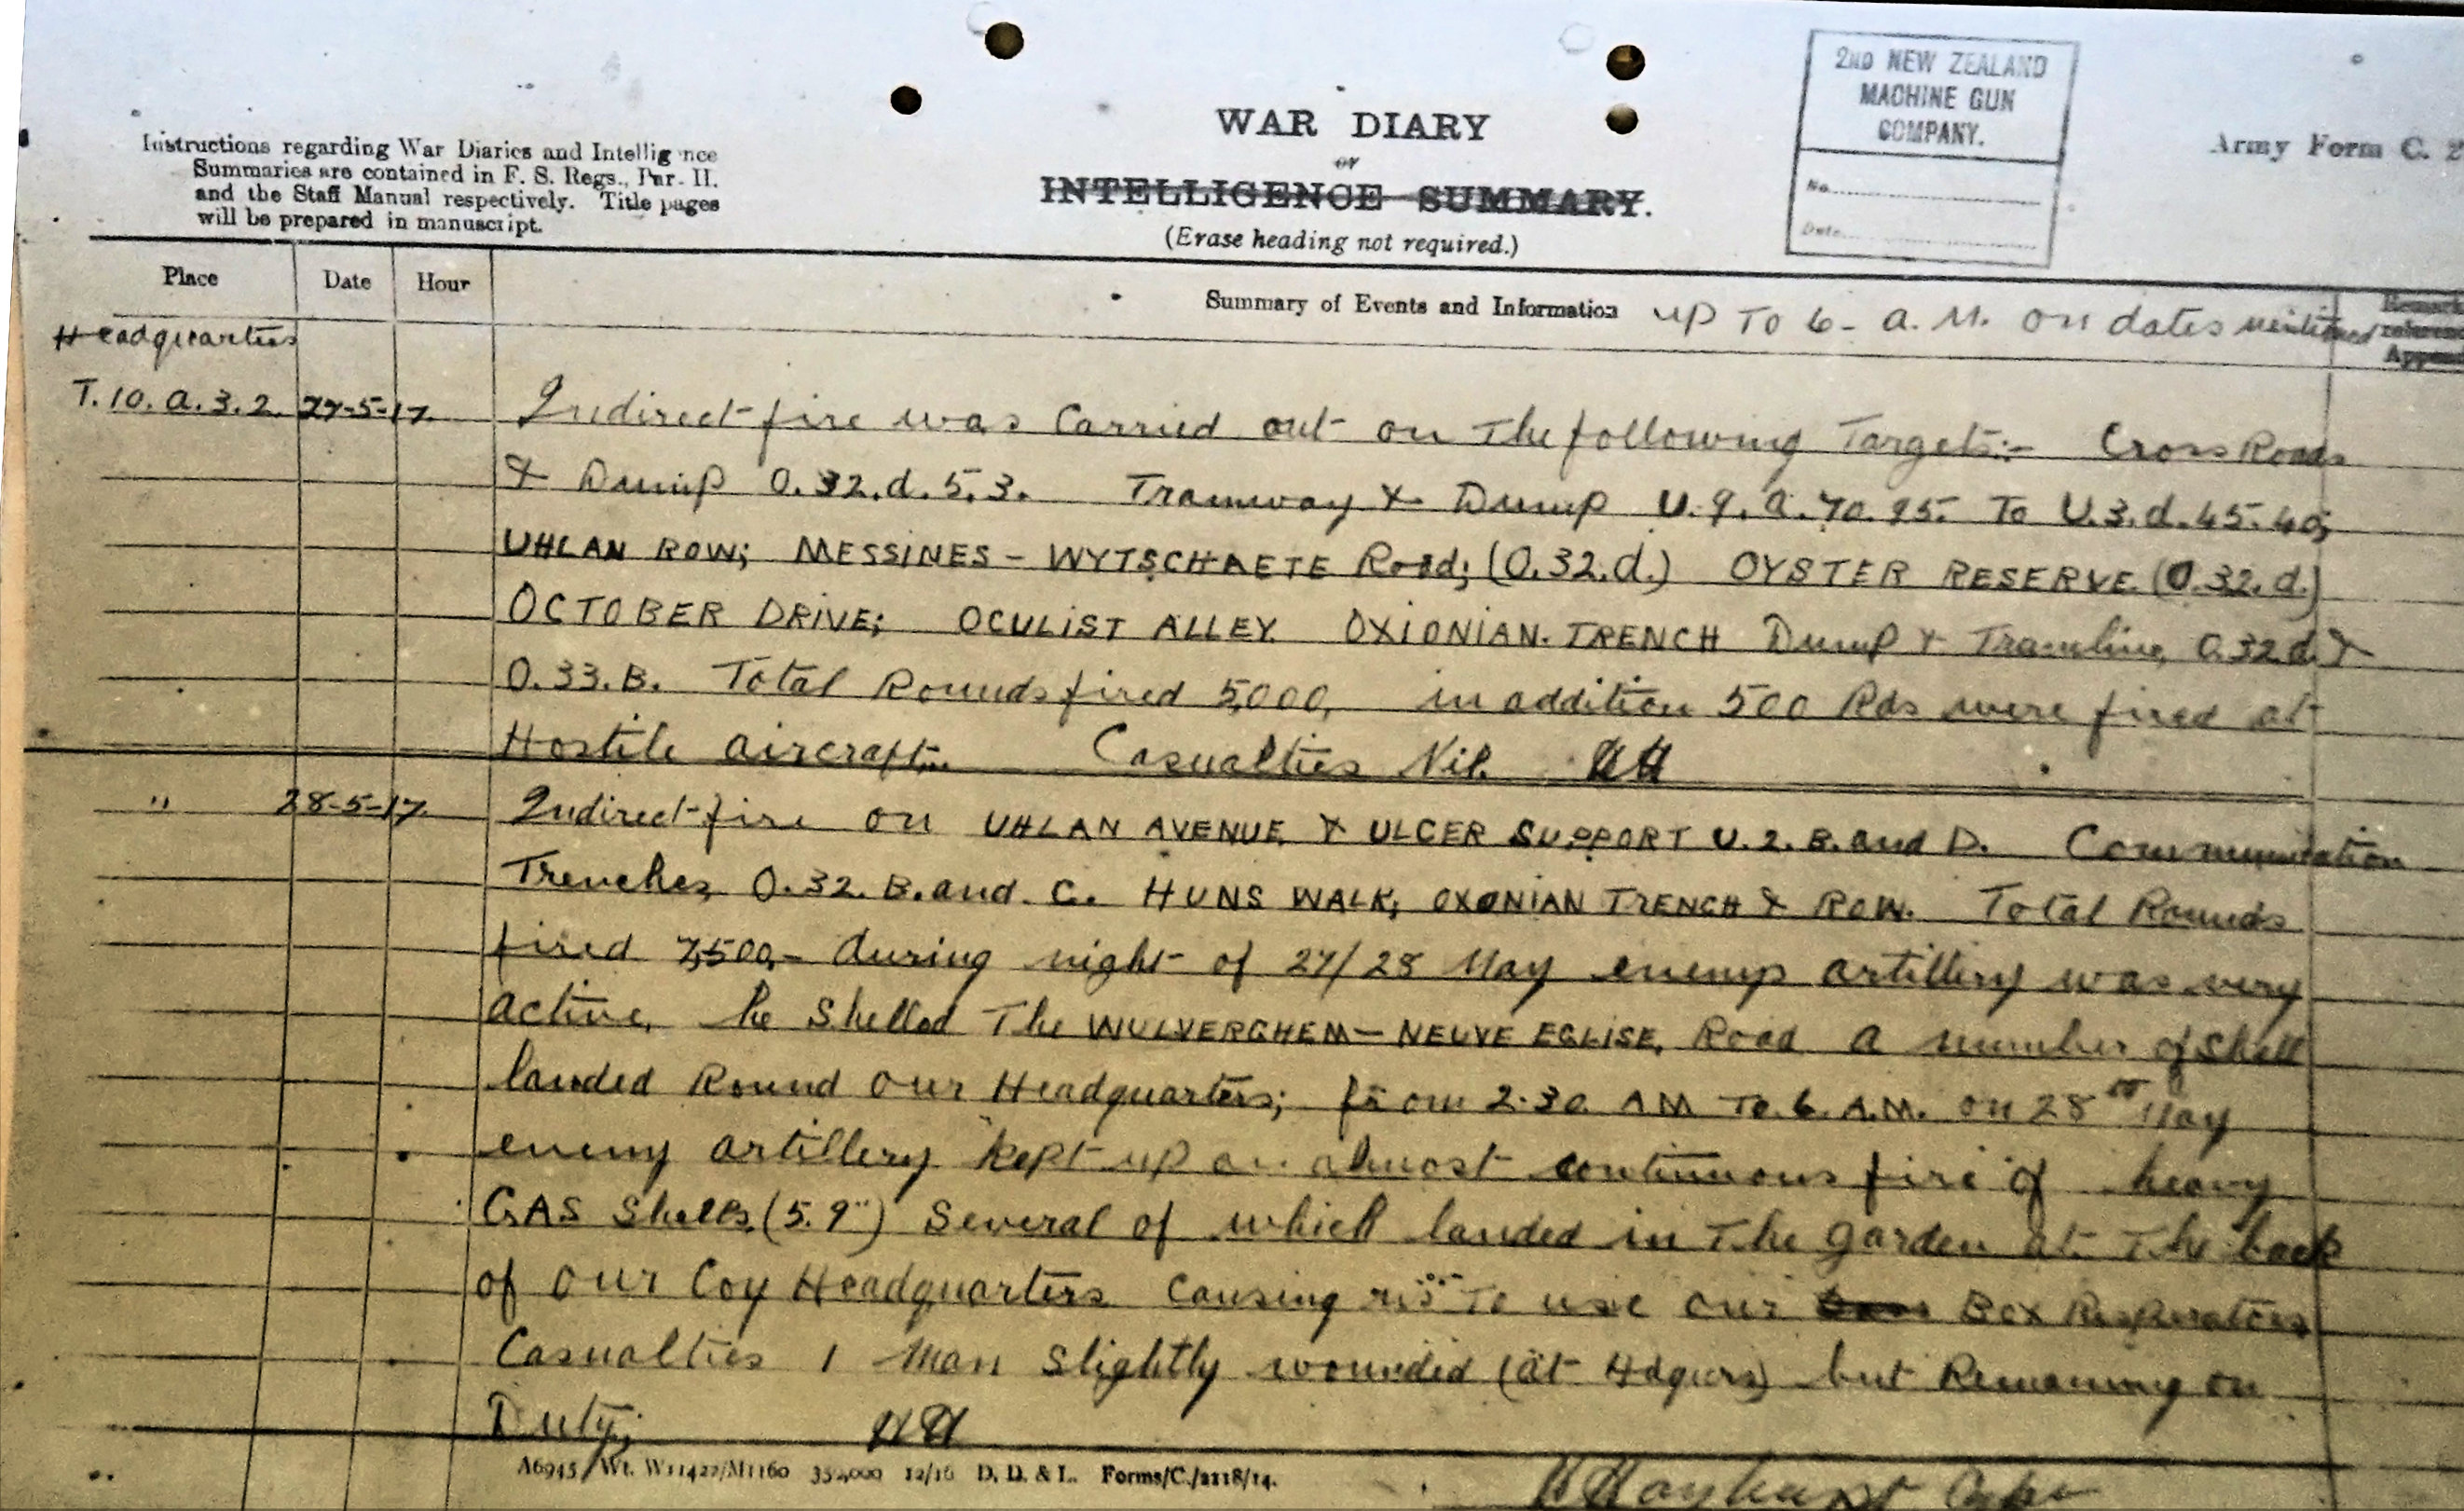 2ND NEW ZEALAND
MACHINE GUN
COMPANY.
No.
Date
Army Form C. 2
Instructions regarding War Diaries and Intellig nce
Summaries are contained in F. S. Regs., Par. II.
and the Staff Manual respectively. Title pages
will be prepared in manuscript.
WAR DIARY
or
INTELLIGENCE SUMMARY.
(Erase heading not required.)
Place Date Hour Summary of Events and Information up To 6- a.M. on dates mentioned
Headquarters
T.10.a.3.2. 27-5-17. Indirect fire was Carried out on The following Targets:- Cross Roads
& Dump O.32.d.5.3. Tramway & Dump U.9.a.70.95. To U.3.d.45.40;
UHLAN ROW; MESSINES - WYTSCHAETE Road; (O.32.d.) OYSTER RESERVE (O.32.d.)
OCTOBER DRIVE; OCULIST ALLEY. OXIONIAN. TRENCH Dump & Tramline, O.32.d. &
O.33.B. Total Rounds fired 5,000, in addition 500 Rds were fired at
Hostile aircraft. Casualties Nil. HH
" 28-5-17. Indirect fire on UHLAN AVENUE & ULCER SUPPORT U.2.B. and D. Communication
Trenches, O.32.B. and C. HUNS WALK, OXONIAN TRENCH & ROW. Total Rounds
fired 7,500,- during night of 27/28 May enemy artillery was very
active, he Shelled The WULVERGHEM - NEUVE EGLISE, Road a number of Shell
landed Round our Headquarters; from 2.30 AM To 6. A.M. on 28th May
enemy artillery kept up an almost continuous fire of heavy
GAS Shells, (5.9") Several of which landed in The garden at The back
of our Coy Headquarters causing us To use our Box Respirators
Casualties 1 Man slightly wounded (at Hdqurs) but Remaining on
Duty; HH
A6945 Wt. W11422/M1160 350,000 12/16 D. D. & L. Forms/C./2118/14.